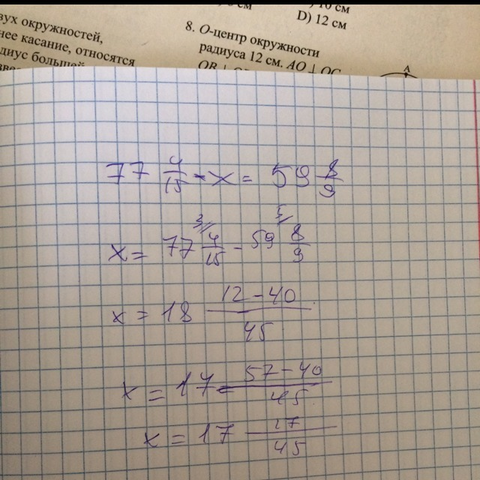 вух окружностей,
нее касание, относятся
диус большей
D) 12 см
8. O-центр окружности
радиуса 12 см. AO ⊥ OC
A
77 4/15 - x = 59 8/9
x = 77 4/15 - 59 8/9
3 5
x = 18 (12 - 40)/45
x = 17 (57 - 40)/45
x = 17 17/45